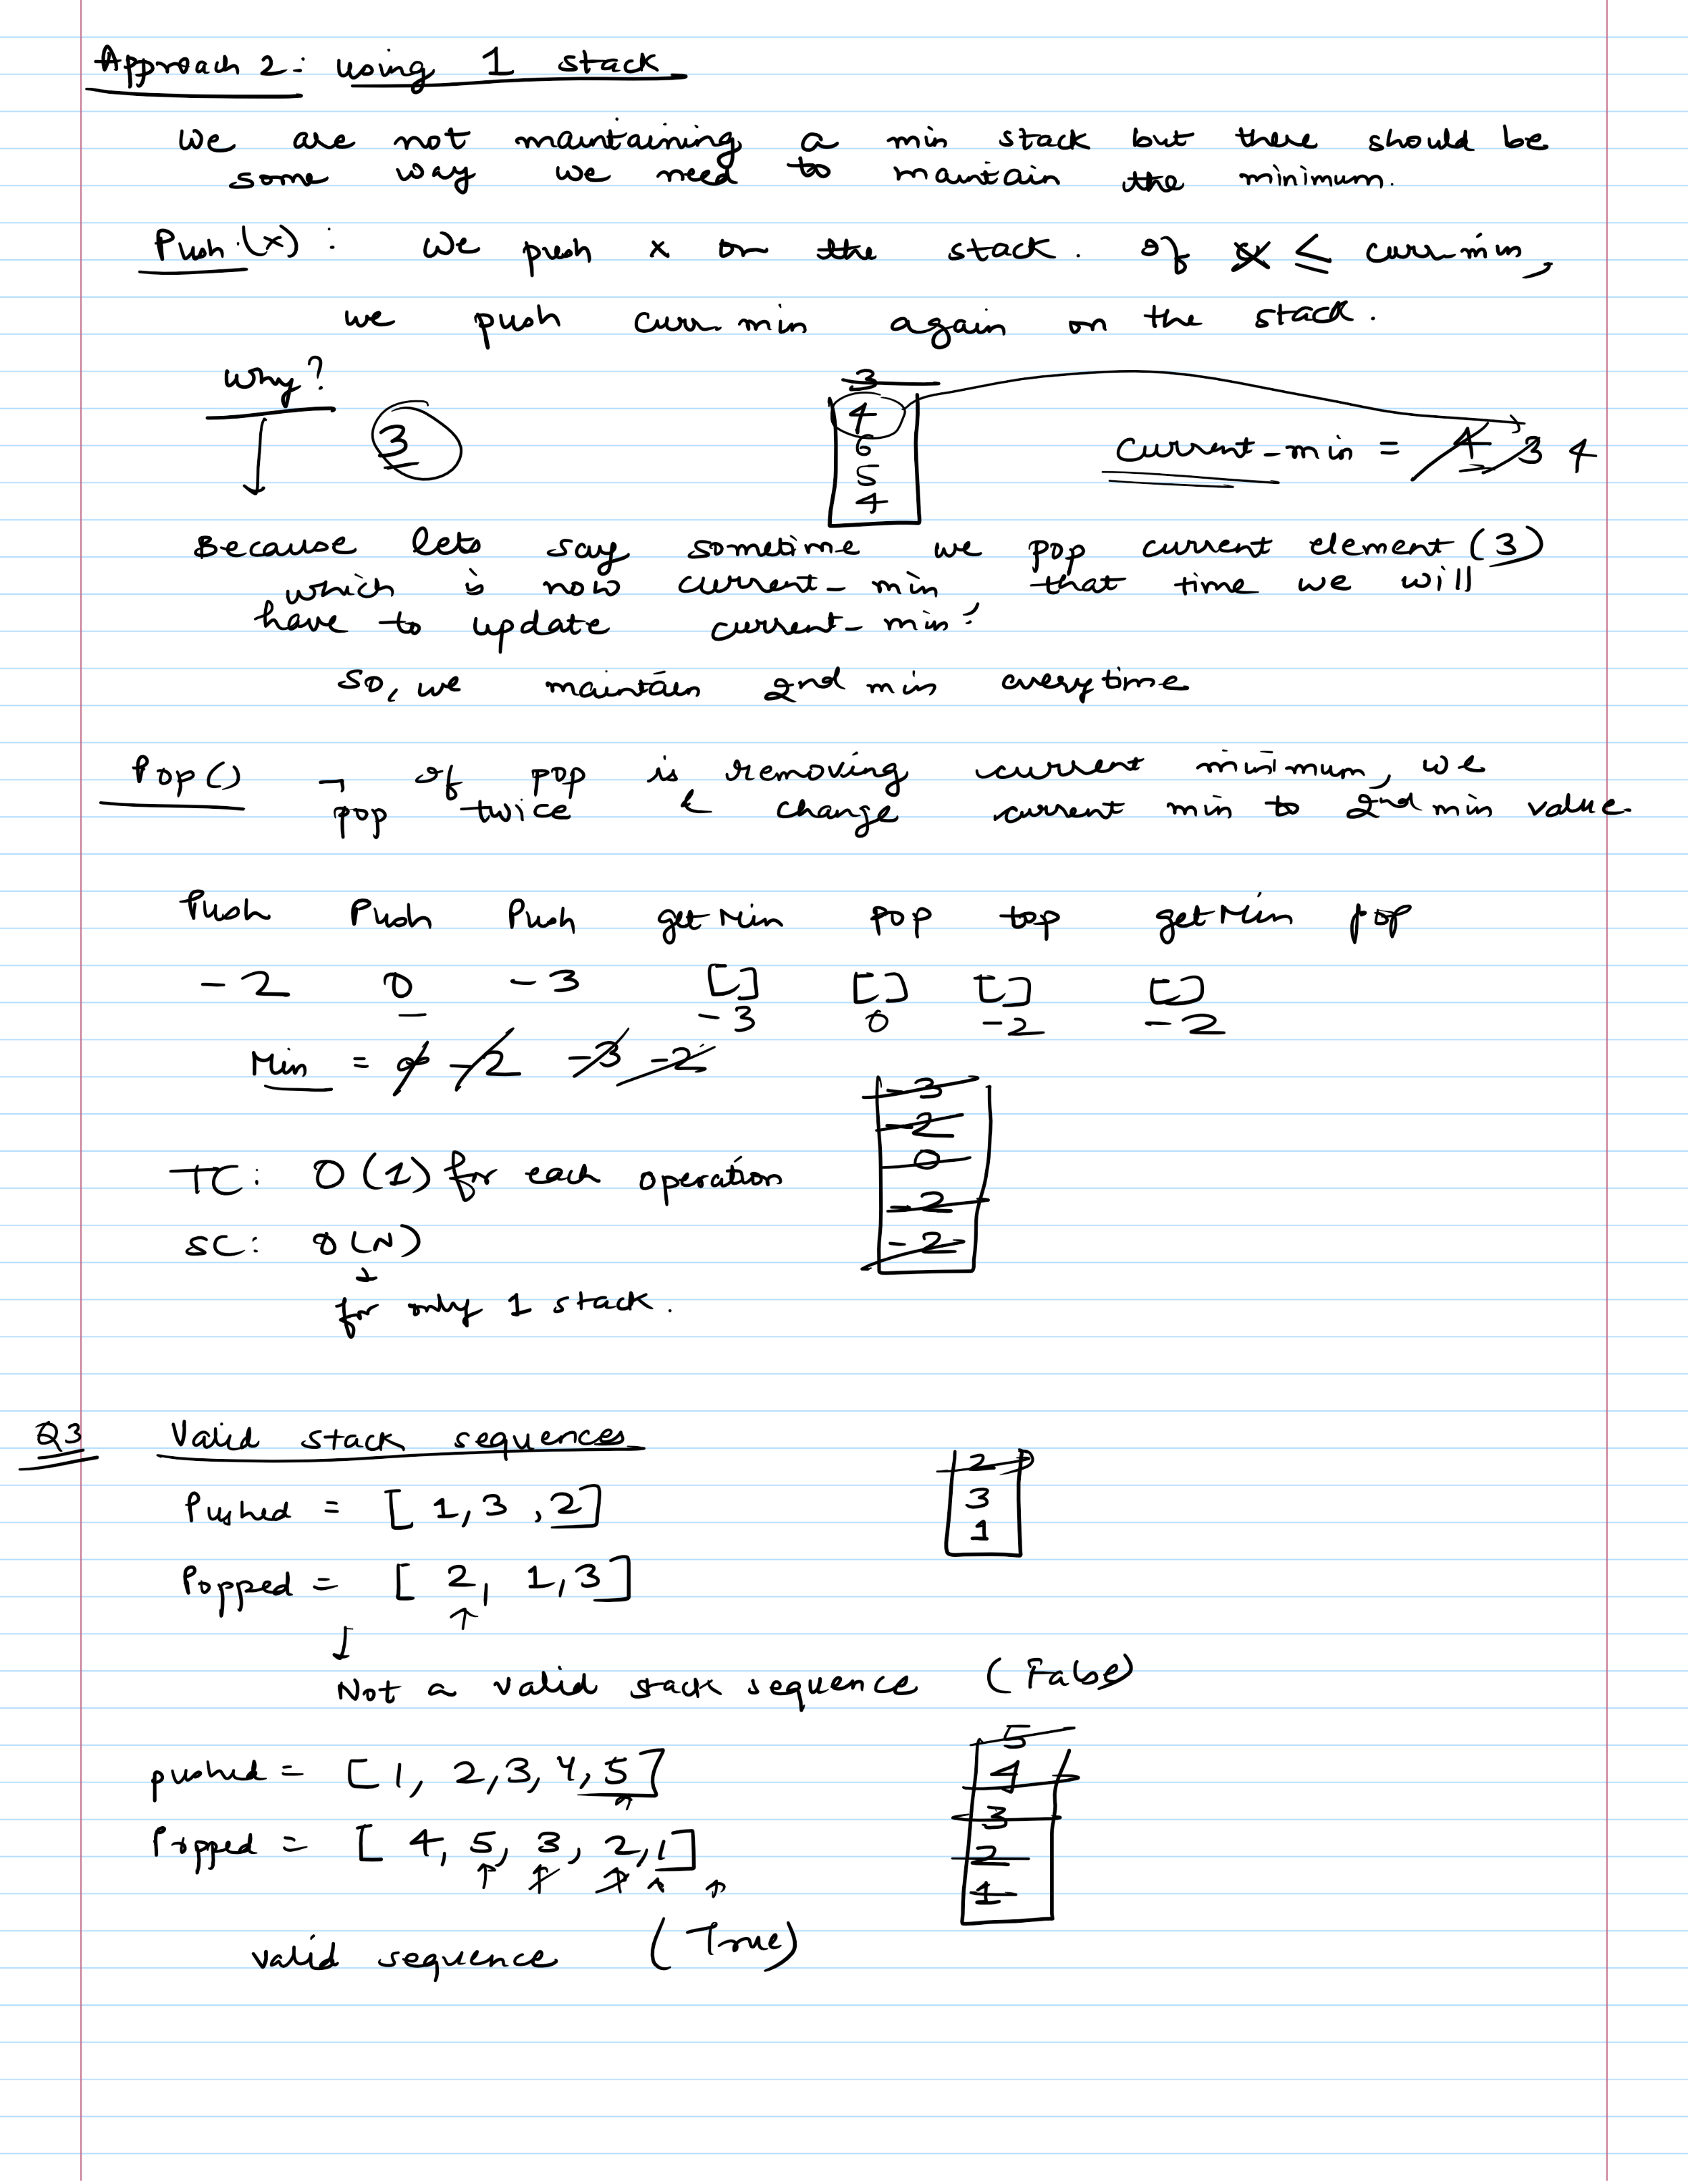 Approach 2:- using 1 stack
We are not maintaining a min stack but there should be
some way we need to maintain the minimum.
Push(x) : We push x on the stack. If x ≤ curr-min,
we push curr-min again on the stack.
Why?
3
3
4
6
5
4
current-min = 4 3 4
Because lets say sometime we pop current element (3)
which is now current-min that time we will
have to update current-min.
So, we maintain 2nd min everytime
Pop() → If pop is removing current minimum, we
pop twice & change current min to 2nd min value.
Push Push Push getMin pop top getMin pop
-2 0 -3 [] [] [] []
-3 0 -2 -2
Min = -2 -3 -2
-3
-2
0
-2
-2
TC: O(1) for each operation
SC: O(N)
↓
for only 1 stack.
Q3 Valid stack sequences
2
3
1
Pushed = [1,3,2]
Popped = [2, 1,3]
↑
↓
Not a valid stack sequence (False)
5
4
3
2
1
pushed = [1, 2,3,4,5]
Popped = [4, 5, 3, 2,1]
valid sequence (True)